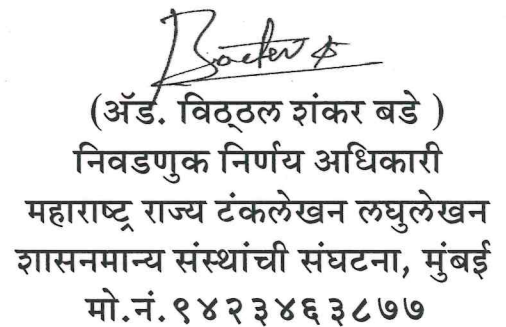 (ॲड. विठ्ठल शंकर बडे )
निवडणुक निर्णय अधिकारी
महाराष्ट्र राज्य टंकलेखन लघुलेखन
शासनमान्य संस्थांची संघटना, मुंबई
मो.नं.९४२३४६३८७७